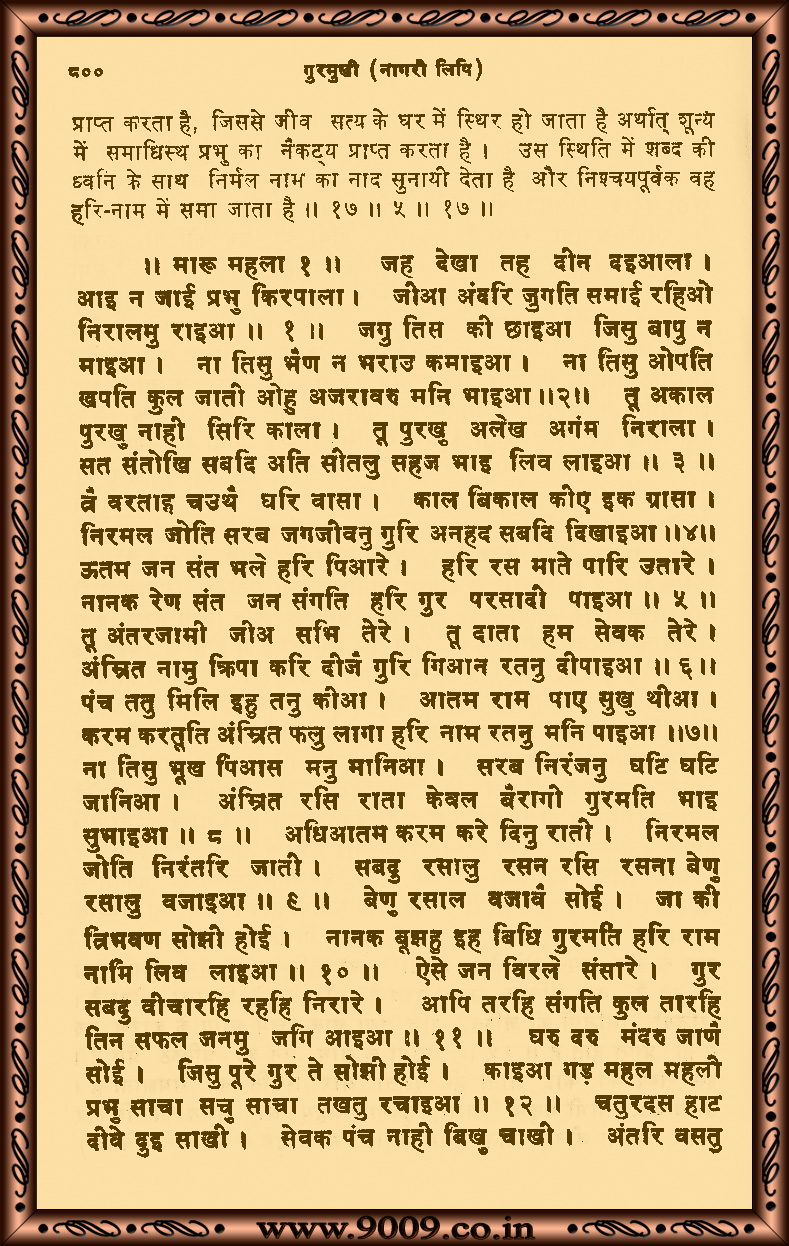 ८००
गुरमुखी (नागरी लिपि)
प्राप्त करता है, जिससे जीव सत्य के घर में स्थिर हो जाता है अर्थात् शून्य
में समाधिस्थ प्रभु का नैकट्य प्राप्त करता है । उस स्थिति में शब्द की
ध्वनि के साथ निर्मल नाम का नाद सुनायी देता है और निश्चयपूर्वक वह
हरि-नाम में समा जाता है ॥ १७ ॥ ५ ॥ १७ ॥
॥ मारू महला १ ॥ जह देखा तह दीन दइआला ।
आइ न जाई प्रभु किरपाला । जीआ अंदरि जुगति समाई रहिओ
निरालमु राइआ ॥ १ ॥ जगु तिस की छाइआ जिसु बापु न
माइआ । ना तिसु भैण न भराउ कमाइआ । ना तिसु ओपति
खपति कुल जाती ओहु अजरावरु मनि भाइआ ॥२॥ तू अकाल
पुरखु नाही सिरि काला । तू पुरखु अलेख अगंम निराला ।
सत संतोखि सबदि अति सीतलु सहज भाइ लिव लाइआ ॥ ३ ॥
त्रै वरताइ चउथै घरि वासा । काल बिकाल कीए इक ग्रासा ।
निरमल जोति सरब जगजीवनु गुरि अनहद सबदि दिखाइआ ॥४॥
ऊतम जन संत भले हरि पिआरे । हरि रस माते पारि उतारे ।
नानक रेण संत जन संगति हरि गुर परसादी पाइआ ॥ ५ ॥
तू अंतरजामी जीअ सभि तेरे । तू दाता हम सेवक तेरे ।
अंम्रित नामु क्रिपा करि दीजै गुरि गिआन रतनु दीपाइआ ॥ ६ ॥
पंच ततु मिलि इहु तनु कीआ । आतम राम पाए सुखु थीआ ।
करम करतूति अंम्रित फलु लागा हरि नाम रतनु मनि पाइआ ॥७॥
ना तिसु भूख पिआस मनु मानिआ । सरब निरंजनु घटि घटि
जानिआ । अंम्रित रसि राता केवल बैरागी गुरमति भाइ
सुभाइआ ॥ ८ ॥ अधिआतम करम करे दिनु राती । निरमल
जोति निरंतरि जाती । सबदु रसालु रसन रसि रसना बेणु
रसालु वजाइआ ॥ ९ ॥ बेणु रसाल वजावै सोई । जा की
त्रिभवण सोझी होई । नानक बूझहु इह बिधि गुरमति हरि राम
नामि लिव लाइआ ॥ १० ॥ ऐसे जन विरले संसारे । गुर
सबदु वीचारहि रहहि निरारे । आपि तरहि संगति कुल तारहि
तिन सफल जनमु जगि आइआ ॥ ११ ॥ घरु दरु मंदरु जाणै
सोई । जिसु पूरे गुर ते सोझी होई । काइआ गड़ महल महली
प्रभु साचा सचु साचा तखतु रचाइआ ॥ १२ ॥ चतुरदस हाट
दीवे दुइ साखी । सेवक पंच नाही बिखु चाखी । अंतरि वसतु
www.9009.co.in